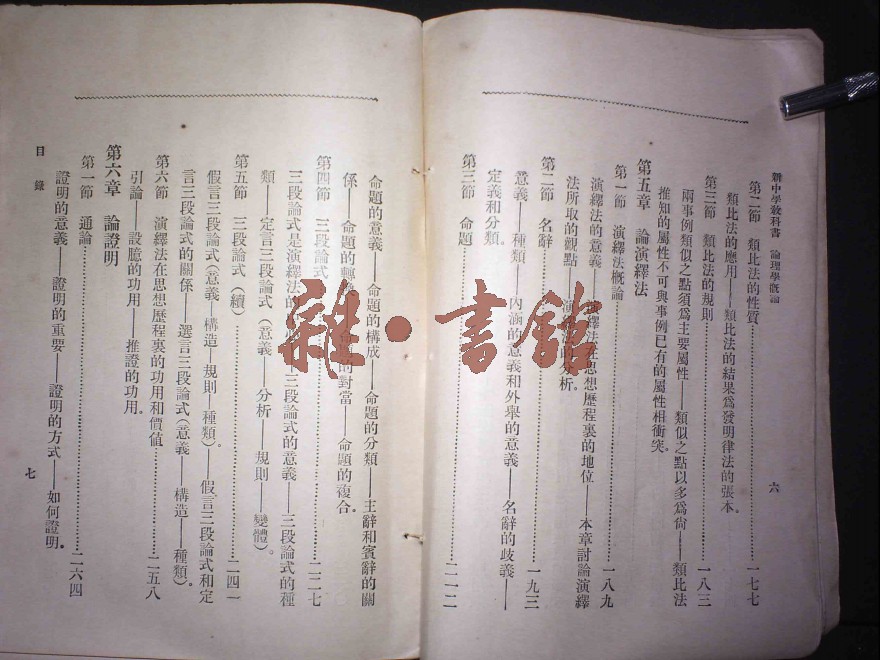 新中學教科書 論理學概論 六
第二節 類比法的性質 一七七
類比法的應用——類比法的結果爲發明律法的張本。
第三節 類比法的規則 一八三
兩事例類似之點須爲主要屬性——類似之點以多爲尙——類比法
推知的屬性不可與事例已有的屬性相衝突。
第五章 論演繹法
第一節 演繹法概論 一八九
演繹法的意義——演繹法在思想歷程裏的地位——本章討論演繹
法所取的觀點——演 的分析。
第二節 名辭 一九三
意義——種類——內涵的意義和外舉的意義——名辭的歧義——
定義和分類。
第三節 命題 二一二
命題的意義——命題的構成——命題的分類——主辭和賓辭的關
係——命題的轉 的對當——命題的複合。
第四節 三段論式 二二七
三段論式是演繹法的 三段論式的意義——三段論式的種
類——定言三段論式（意義——分析——規則——變體）。
第五節 三段論式（續） 二四一
假言三段論式（意義——構造——規則——種類）。——假言三段論式和定
言三段論式的關係——選言三段論式（意義——構造——種類）。
第六節 演繹法在思想歷程裏的功用和價値 二五八
引論——設臆的功用——推證的功用。
第六章 論證明
第一節 通論 二六四
證明的意義——證明的重要——證明的方式——如何證明。
目錄 七
雜·書館